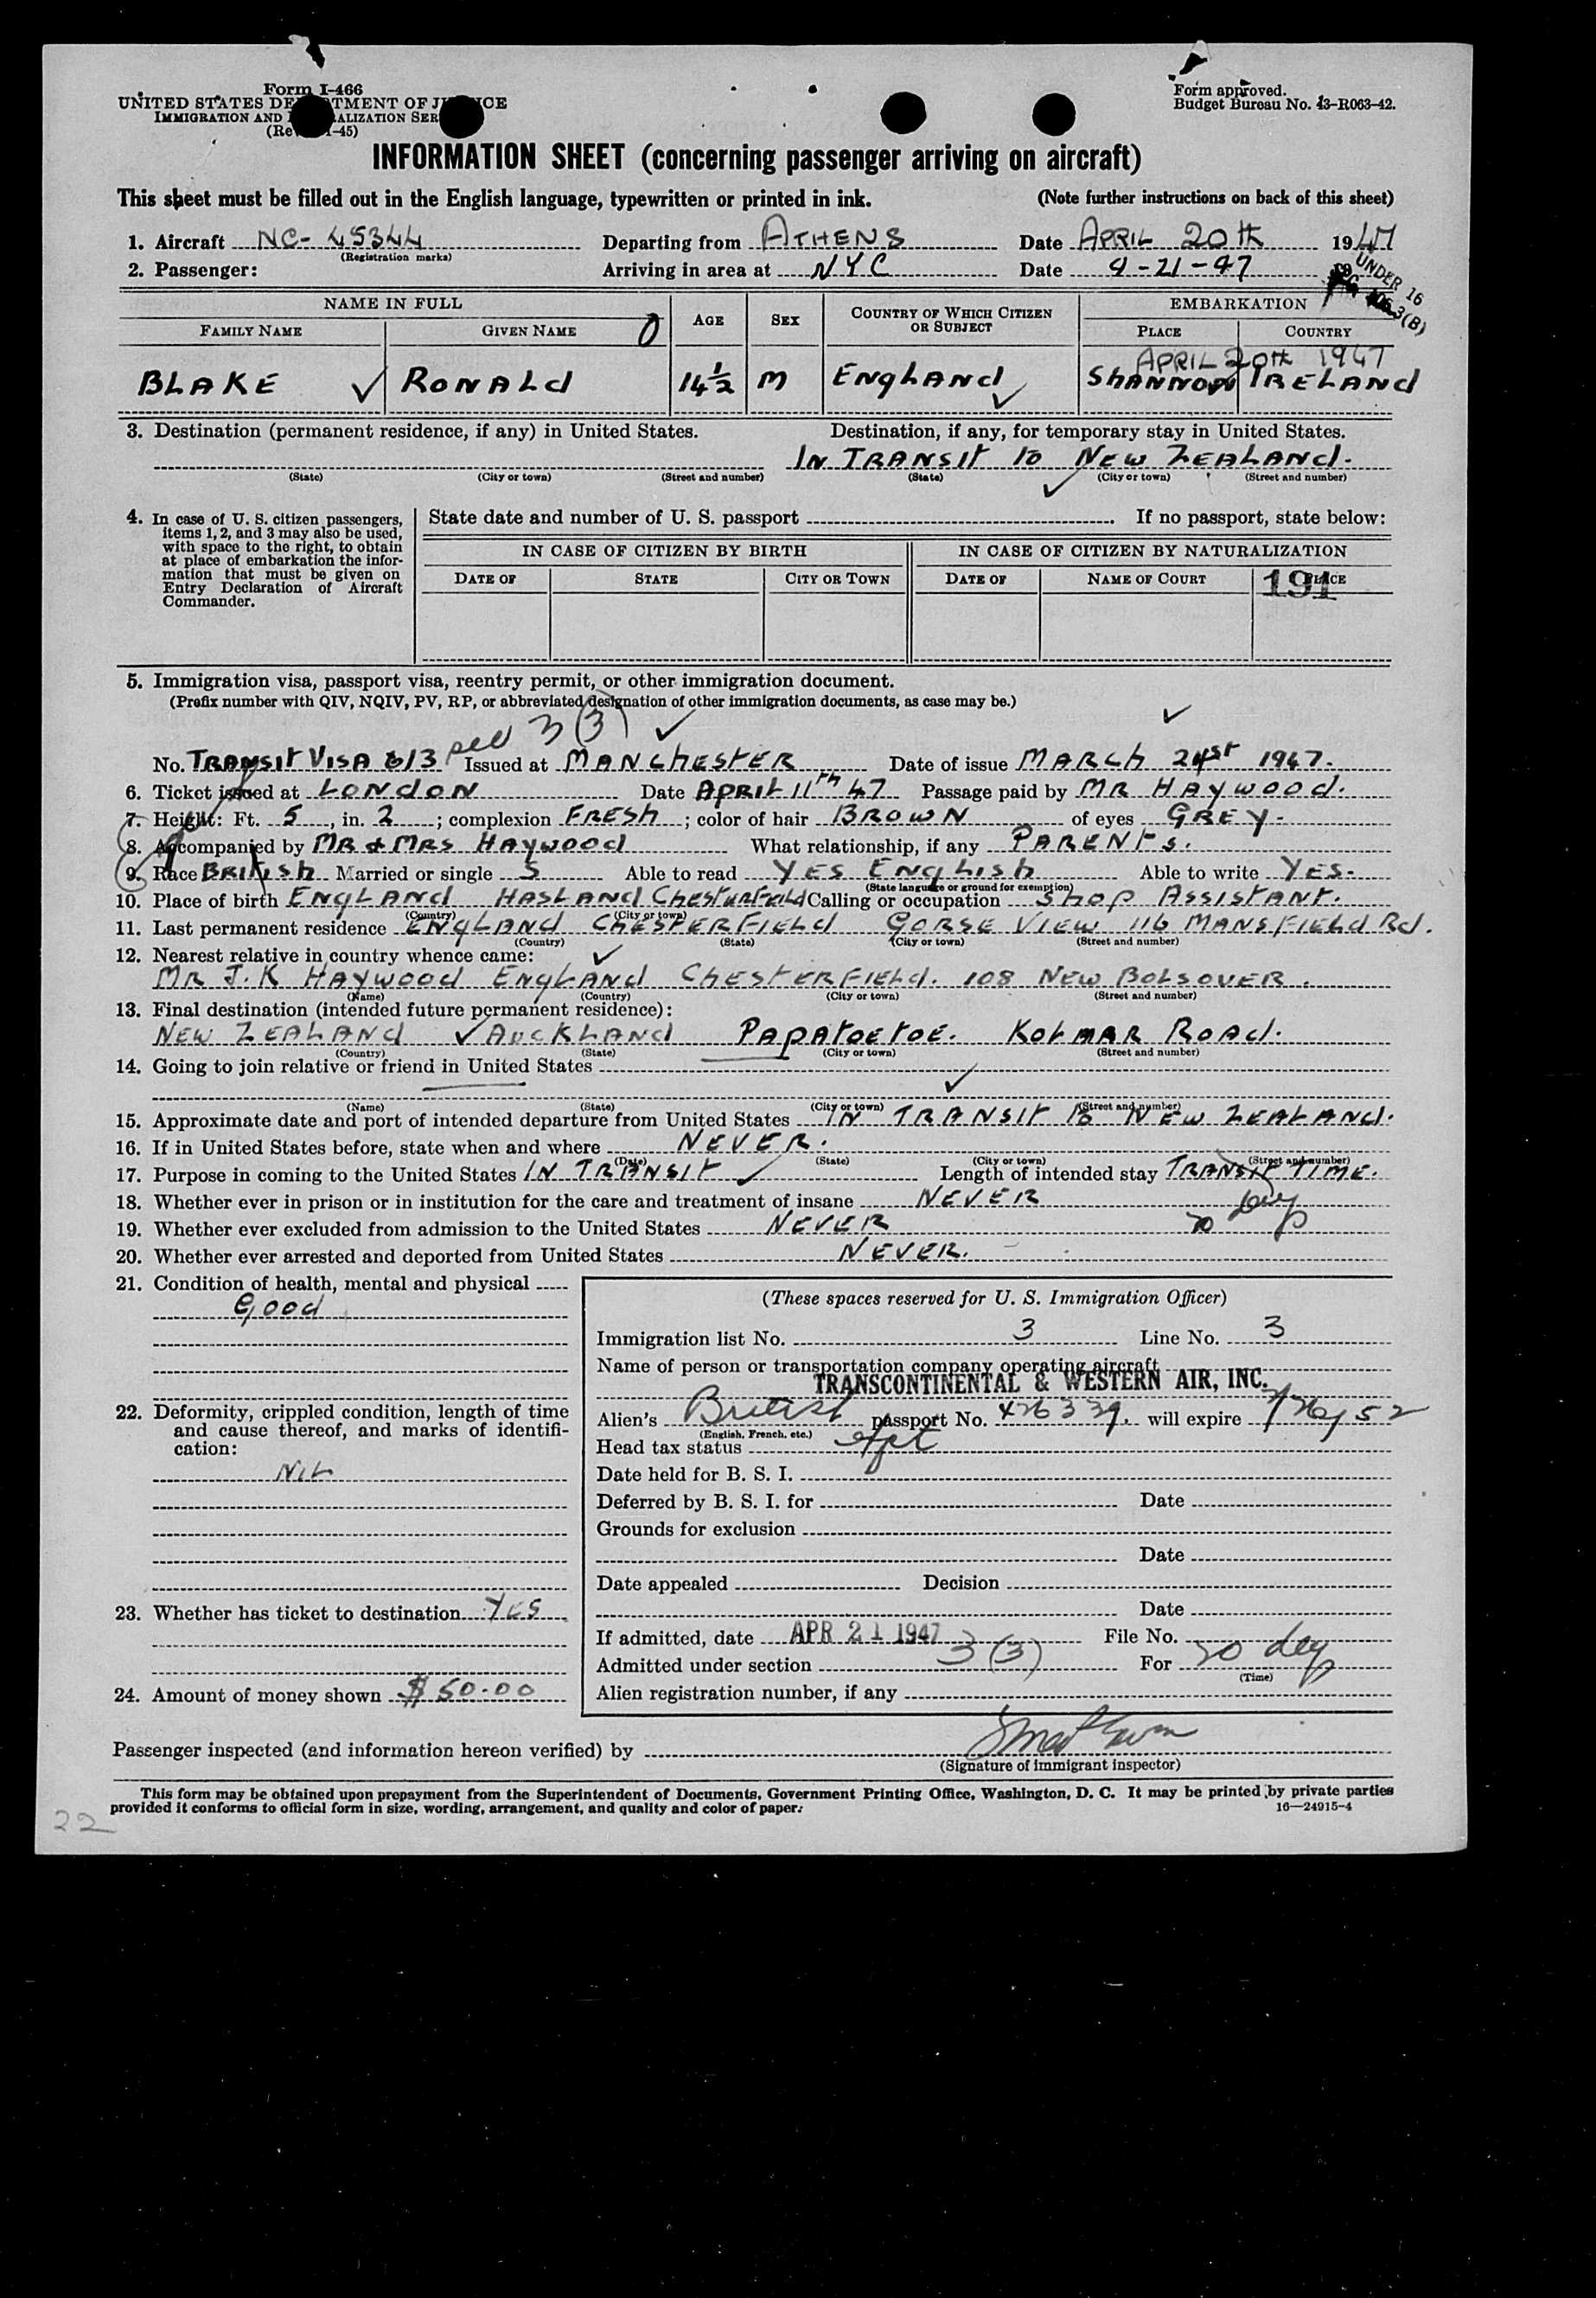 Form I-466
UNITED STATES DEPARTMENT OF JUSTICE
IMMIGRATION AND NATURALIZATION SERVICE
Form approved.
Budget Bureau No. 43-R063-42.
INFORMATION SHEET (concerning passenger arriving on aircraft)
This sheet must be filled out in the English language, typewritten or printed in ink. (Note further instructions on back of this sheet)
1. Aircraft NC-45344 Departing from ATHENS Date APRIL 20th 1947
(Registration marks)
2. Passenger: Arriving in area at NYC Date 4-21-47 19
UNDER 16
3(B)
NAME IN FULL AGE SEX COUNTRY OF WHICH CITIZEN OR SUBJECT EMBARKATION
FAMILY NAME GIVEN NAME PLACE COUNTRY
APRIL 20th 1947
BLAKE RONALd 14½ M ENgLANd ShANNON IRELANd
3. Destination (permanent residence, if any) in United States. Destination, if any, for temporary stay in United States.
IN TRANSIt to NEW ZEALANd.
(State) (City or town) (Street and number) (State) (City or town) (Street and number)
4. In case of U. S. citizen passengers, items 1, 2, and 3 may also be used, with space to the right, to obtain at place of embarkation the information that must be given on Entry Declaration of Aircraft Commander.
State date and number of U. S. passport If no passport, state below:
IN CASE OF CITIZEN BY BIRTH IN CASE OF CITIZEN BY NATURALIZATION
DATE OF STATE CITY OR TOWN DATE OF NAME OF COURT PLACE
191
5. Immigration visa, passport visa, reentry permit, or other immigration document.
(Prefix number with QIV, NQIV, PV, RP, or abbreviated designation of other immigration documents, as case may be.)
3(3)
No. TRANSIt VISA 613 Issued at MANChESTER Date of issue MARCh 21st 1947.
6. Ticket issued at LONdON Date APRIL 11th 47 Passage paid by MR HAYWOOd.
7. Height: Ft. 5, in. 2; complexion FRESh; color of hair BROWN of eyes GREY.
8. Accompanied by MR & MRS HAYWOOd What relationship, if any PARENtS.
9. Race BRItISh Married or single S Able to read YES ENgLISh Able to write YES.
(State language or ground for exemption)
10. Place of birth ENgLANd HASLANd ChEStERFIELd Calling or occupation ShOP ASSIStANt.
(Country) (City or town)
11. Last permanent residence ENgLANd ChESTERFIELd GORSE VIEW 116 MANSFIELd Rd.
(Country) (State) (City or town) (Street and number)
12. Nearest relative in country whence came:
MR J.K HAYWOOd ENgLANd ChEStERFIELd. 108 NEW BOLSOVER.
(Name) (Country) (City or town) (Street and number)
13. Final destination (intended future permanent residence):
NEW ZEALANd AUCKLANd PAPAtOEtOE. KOLMAR ROAd.
(Country) (State) (City or town) (Street and number)
14. Going to join relative or friend in United States
(Name) (State) (City or town) (Street and number)
15. Approximate date and port of intended departure from United States IN TRANSIt to NEW ZEALANd.
16. If in United States before, state when and where NEVER.
(Date) (State) (City or town) (Street and number)
17. Purpose in coming to the United States IN TRANSIt Length of intended stay TRANSIt TIME.
18. Whether ever in prison or in institution for the care and treatment of insane NEVER
19. Whether ever excluded from admission to the United States NEVER
20. Whether ever arrested and deported from United States NEVER.
21. Condition of health, mental and physical
gOOd
22. Deformity, crippled condition, length of time and cause thereof, and marks of identification:
NIL
23. Whether has ticket to destination YES
24. Amount of money shown $50.00
(These spaces reserved for U. S. Immigration Officer)
Immigration list No. 3 Line No. 3
Name of person or transportation company operating aircraft
TRANSCONTINENTAL & WESTERN AIR, INC.
Alien's British passport No. 426339. will expire
(English, French, etc.)
Head tax status
Date held for B. S. I.
Deferred by B. S. I. for Date
Grounds for exclusion
Date
Date appealed Decision
Date
If admitted, date APR 21 1947 File No.
Admitted under section 3(3) For
(Time)
Alien registration number, if any
Passenger inspected (and information hereon verified) by
(Signature of immigrant inspector)
This form may be obtained upon prepayment from the Superintendent of Documents, Government Printing Office, Washington, D. C. It may be printed by private parties
provided it conforms to official form in size, wording, arrangement, and quality and color of paper.
16—24915-4
22